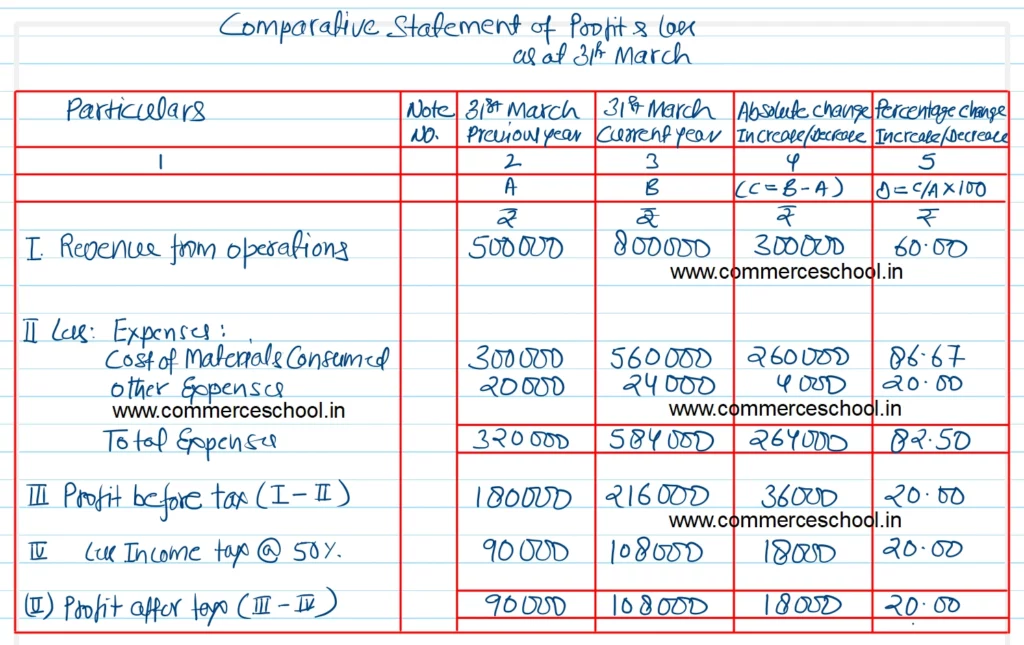 Comparative Statement of Profit & Loss
as at 31st March
Particulars Note No. 31st March Previous year 31st March Current year Absolute change Increase/Decrease Percentage change Increase/Decrease
1 2 3 4 5
A B (C=B-A) D=C/A×100
₹ ₹ ₹ ₹
I. Revenue from operations 500000 800000 300000 60.00
www.commerceschool.in
II Less: Expenses:
Cost of Materials Consumed 300000 560000 260000 86.67
other Expenses 20000 24000 4000 20.00
www.commerceschool.in www.commerceschool.in
Total Expenses 320000 584000 264000 82.50
III Profit before tax (I-II) 180000 216000 36000 20.00
www.commerceschool.in
IV Less Income tax @ 50%. 90000 108000 18000 20.00
(II) Profit after tax (III-IV) 90000 108000 18000 20.00